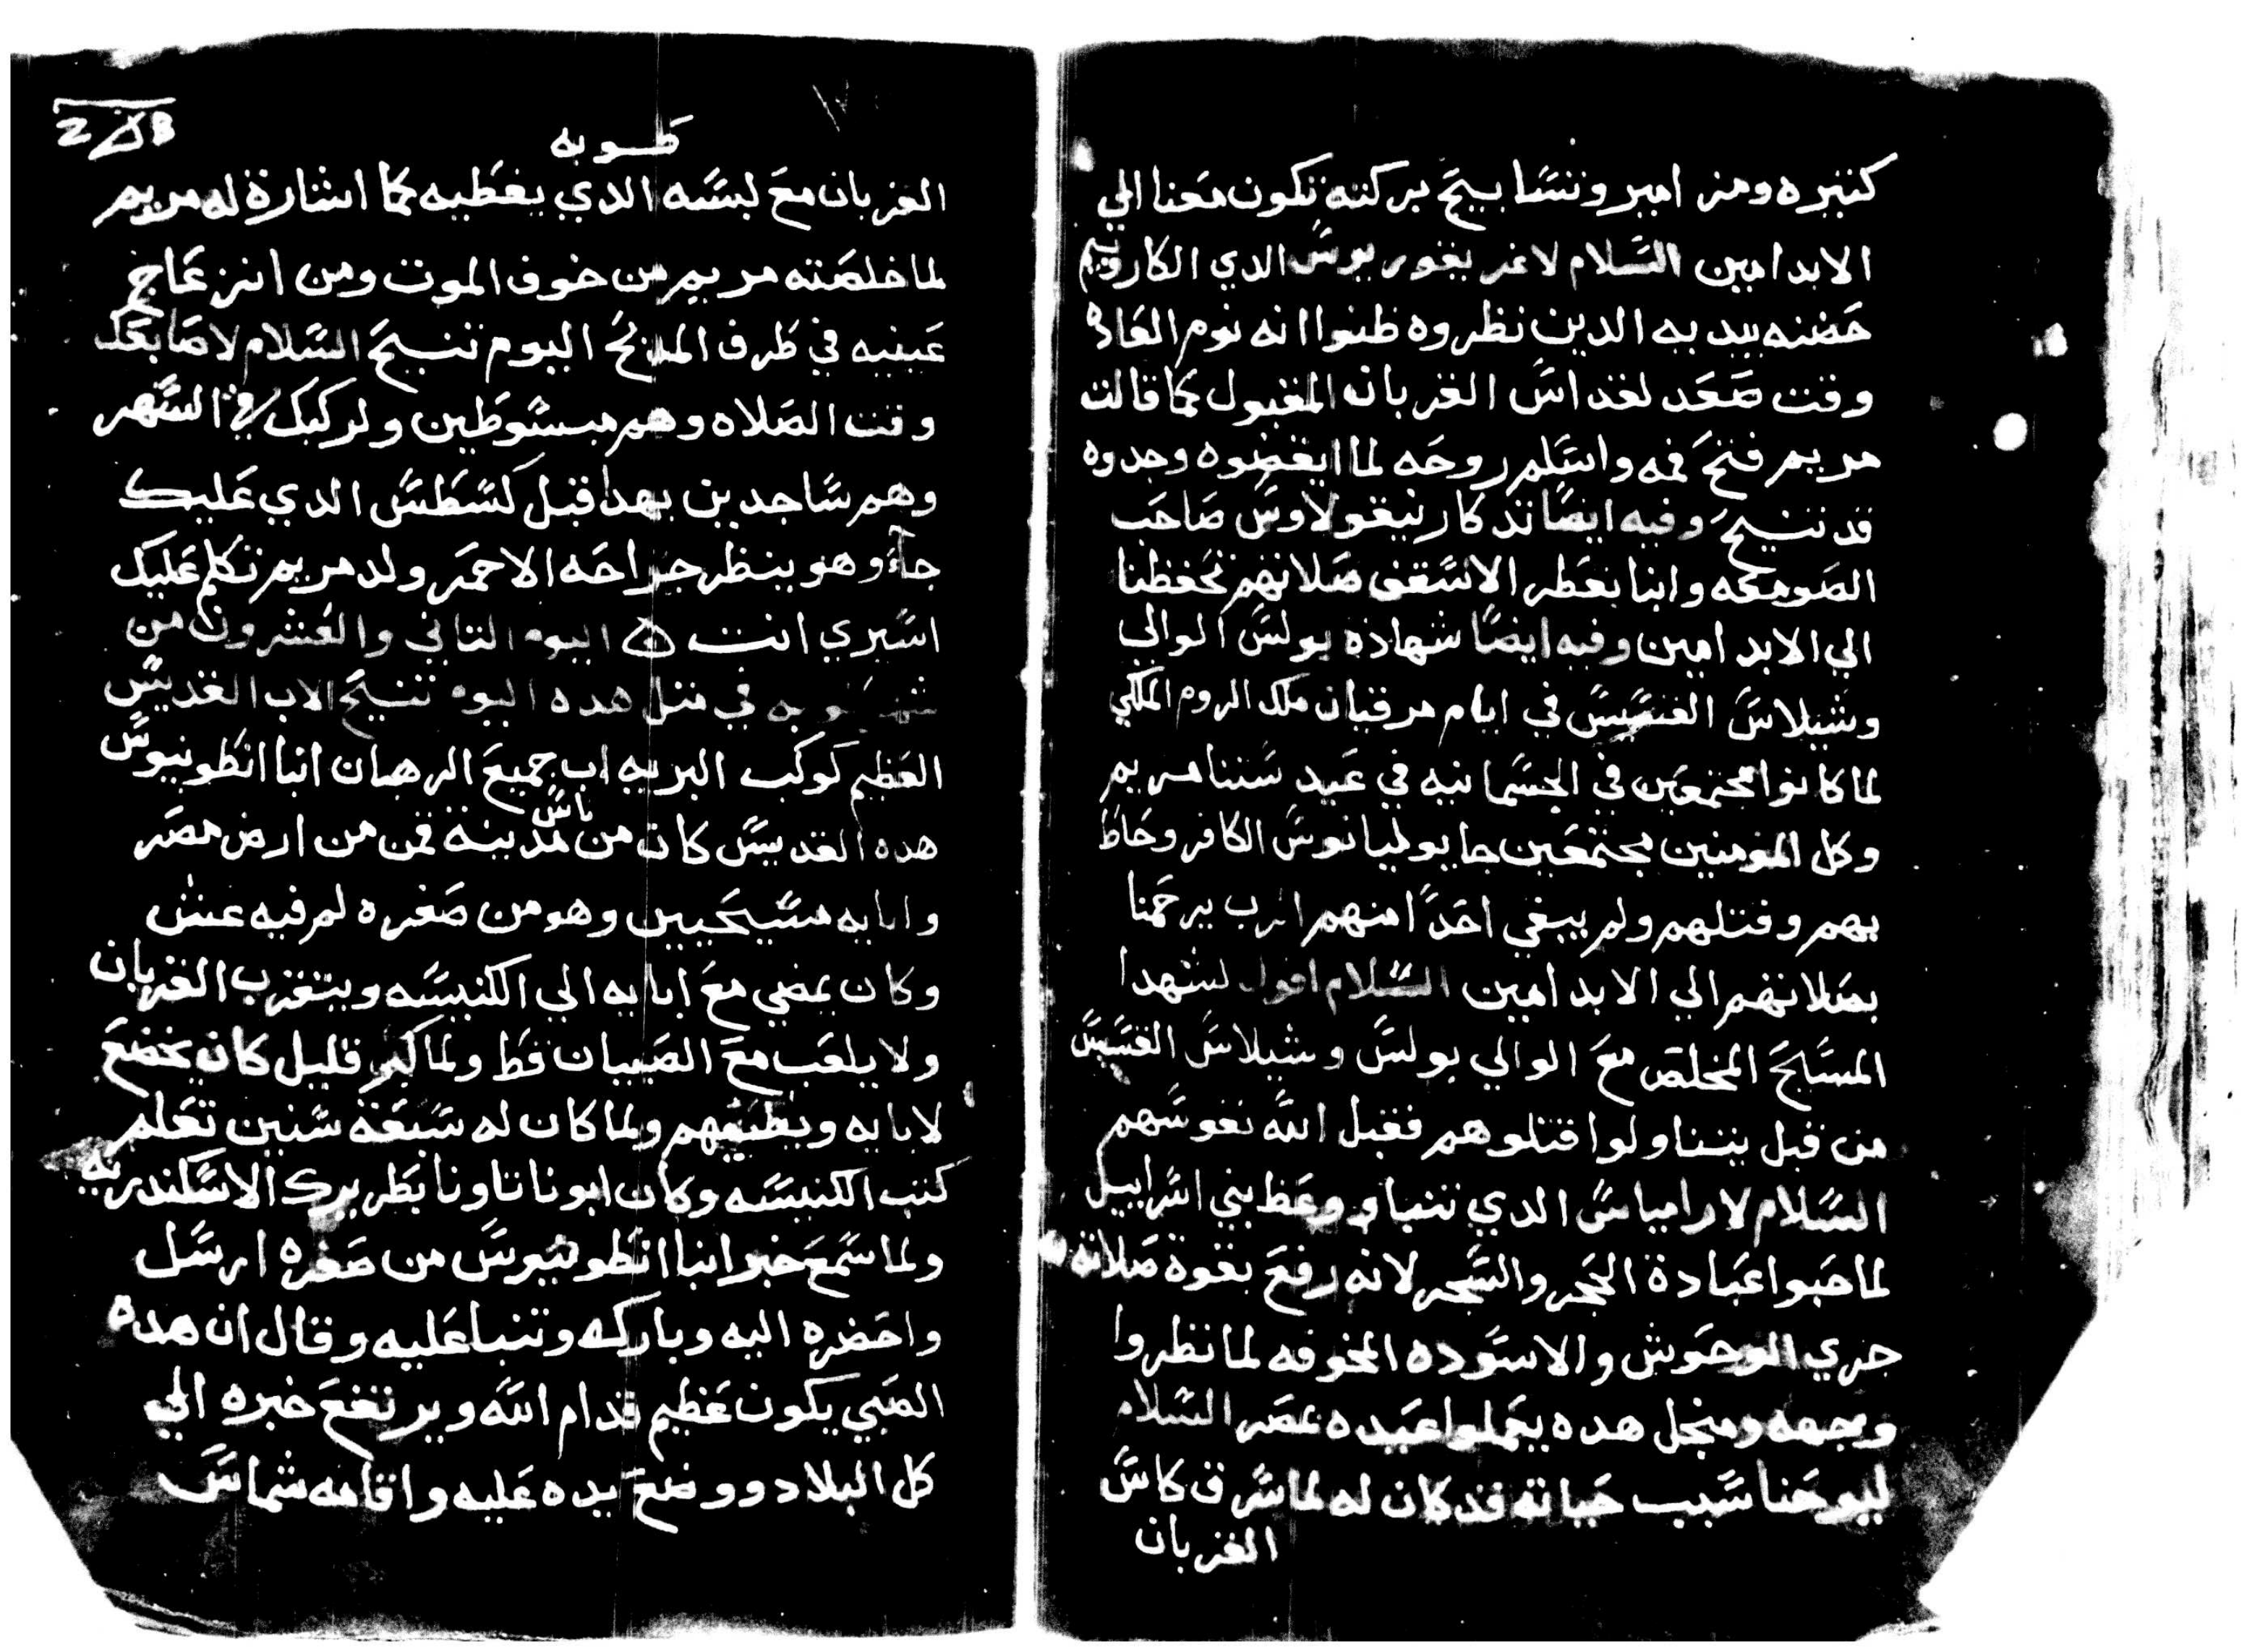 كتيره ومزامير وتسابيح بركته تكون معنا الي
الابد امين السلام لاغريغوريوس الدي الكاروبيم
حضنه بيديه الدين نظروه ظنوا انه نوم العاده
وقت صعد لغداس الغربان المغبول كما قالت
مريم فتح فمه واسلم روحه لما ايغضوه وجدوه
قد تنيح وفيه ايضا تدكار نيغولاوس صاحب
الصومعه وابنا بعطر الاسقف صلاتهم تحفظنا
الي الابد امين وفيه ايضا شهادة بولس الوالي
وشيلاس الغسيس في ايام مرقيان ملك الروم الملكي
لما كانوا مجتمعين في الجسمانيه في عيد ستنا مريم
وكل المومنين مجتمعين جا يوليانوس الكافر وحاط
بهم وقتلهم ولم يبغي احدا منهم الرب يرحمنا
بصلاتهم الي الابد امين السلام اقول لشهدا
المسيح المخلص مع الوالي بولس وشيلاس الغسيس
من قبل قتلوهم فغبل الله نفوسهم
السلام لارامياس الدي تنبا ووعظ بني اسراييل
لما حبوا عبادة الحجر والشجر لانه رفع بغوة صلاته
جري الوحوش والاسوده المخوفه لما نظروا
وجهه ومنجل هده يعملوا عيده مصر السلام
ليوحنا سبب حياته قد كان له لما شرق كاس
الغربان
طوبه
الغربان مع لبسه الدي يغطيه كما اشارة له مريم
لما خلصته مريم من خوف الموت ومن انزعاج
عينيه في طرف المدبح اليوم تنيح السلام لاصابعك
وقت الصلاه وهم مبسوطين ولركبك في السهر
وهم ساجدين بهدا قبل كسطس الدي عليك
جاء وهو ينظر جراحه الاحمر ولد مريم تكلم عليك
اسيري انت اليوم التاني والعشرون من
شهر طوبه في متل هده اليوم تنيح الاب الغديس
العظيم كوكب البريه اب جميع الرهبان انبا انطونيوس
هده الغديس كان من ناس مدينة قمن من ارض مصر
وابايه مسيحيين وهو من صغره لم فيه غش
وكان يمضي مع ابايه الي الكنيسه ويتغرب الغربان
ولا يلعب مع الصبيان قط ولما كبر قليل كان يخضع
لابايه ويطيعهم ولما كان له سبعة سنين تعلم
كتب الكنيسه وكان ابونا تاونا بطريرك الاسكندريه
ولما سمع خبر انبا انطونيوس من صغره ارسل
واحضره اليه وباركه وتنبا عليه وقال ان هده
الصبي يكون عظيم قدام الله ويرتفع خبره الي
كل البلاد ووضع يده عليه واقامه شماس